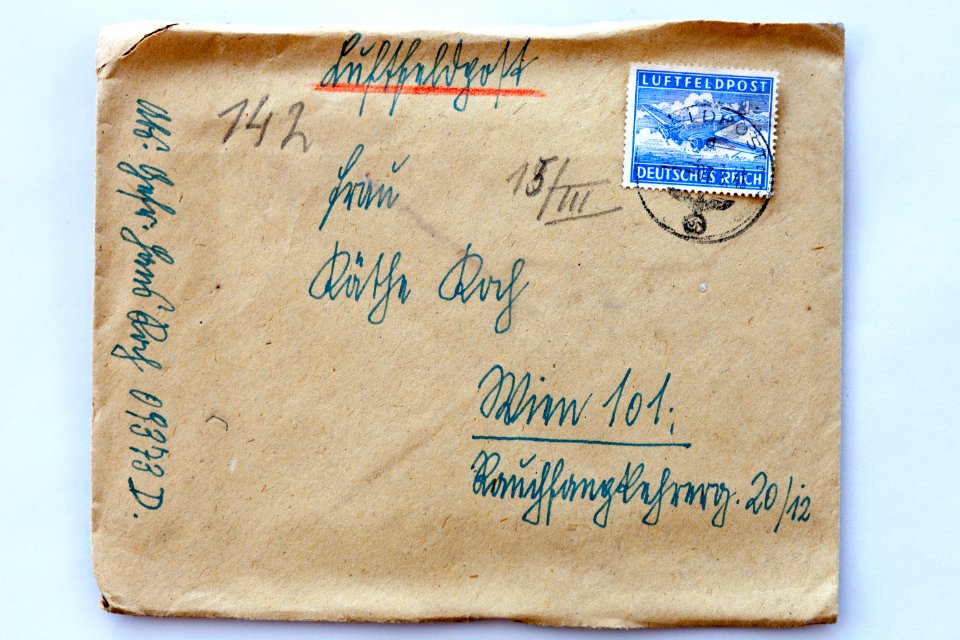 Luftfeldpost
142
LUFTFELDPOST
DEUTSCHES REICH
15/III
Frau
Käthe Koch
Wien 101.
Rauchfangkehrerg. 20/12
Abs. Gefr. Koch 09373 D.